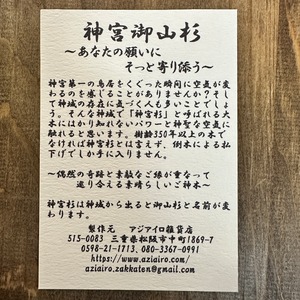 神宮御山杉
〜あなたの願いに
そっと寄り添う〜
神宮第一の鳥居をくぐった瞬間に空気が変
わるのを感じることがありませんか?そし
て神域の存在に気づく人も多いことでしょ
う。そんな神域で「神宮杉」と呼ばれる大木
にはかり知れないパワーと神聖な空気に
触れると思います。樹齢350年以上の木で
なければ神宮杉とは言えず、倒木による払
下げでしか手に入りません。
〜偶然の奇跡と素敵なご縁が重なって
巡り会える素晴らしいご神木〜
神宮杉は神域から出ると御山杉と名前が変
わります。
製作元 アジアイロ雑貨店
515-0083 三重県松阪市中町1869-7
0598-21-1713、080-3367-0991
https://www.aziairo.com/
aziairo.zakkaten@gmail.com